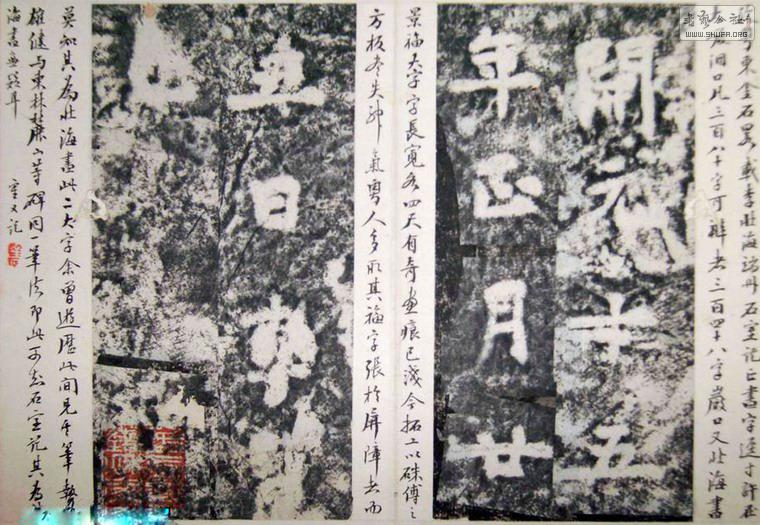 书艺公社
WWW.SHUFA.ORG
粵東金石畧載李北海端州石室記正書字逕寸許在
洞口凡三百八十字可辨者三百四十八字巖口又北海書
開元十五
年正月廿
景福大字字長寬各四尺有奇畫痕已淺今拓工以硃傅之
方板失神氣粵人多取其福字張於屏障而
五日
莫知其為北海書此二大字余曾遊歷此間見其筆勢
雄健与東林麓山等碑同一筆法即此可知石室記其為北
海書無疑耳
又記